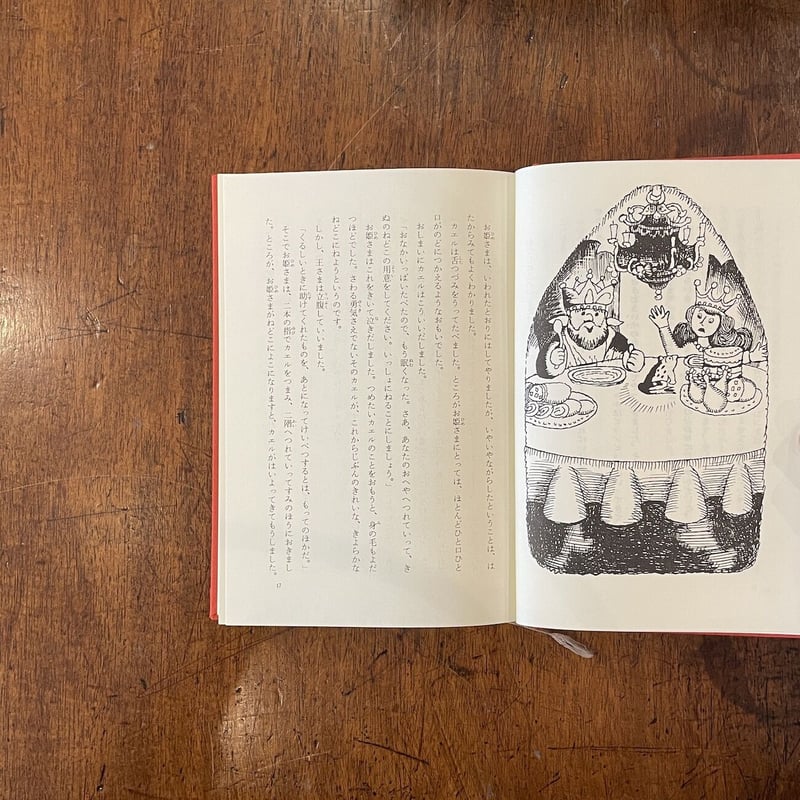 お姫さまは、いわれたとおりにはしてやりましたが、いやいやながらしたということは、は
たからみてもよくわかりました。
カエルは舌つづみをうってたべました。ところがお姫さまにとっては、ほとんどひと口ひと
口がのどにつかえるようなおもいでした。
おしまいにカエルはこういいだしました。
「おなかいっぱいたべたので、もう眠くなった。さあ、あなたのおへやへつれていって、き
ぬのねどこの用意をしてください。いっしょにねることにしましょう。」
お姫さまはこれをきいて泣きだしました。つめたいカエルのことをおもうと、身の毛もよだ
つほどでした。さわる勇気さえでないそのカエルが、これからじぶんのきれいな、きよらかな
ねどこにねようというのです。
しかし、王さまは立腹していいました。
「くるしいときに助けてくれたものを、あとになってけいべつするとは、もってのほかだ。」
そこでお姫さまは、二本の指でカエルをつまみ、二階へつれていってすみのほうにおきまし
た。ところが、お姫さまがねどこによこになりますと、カエルがはいよってきてもうしました。
17